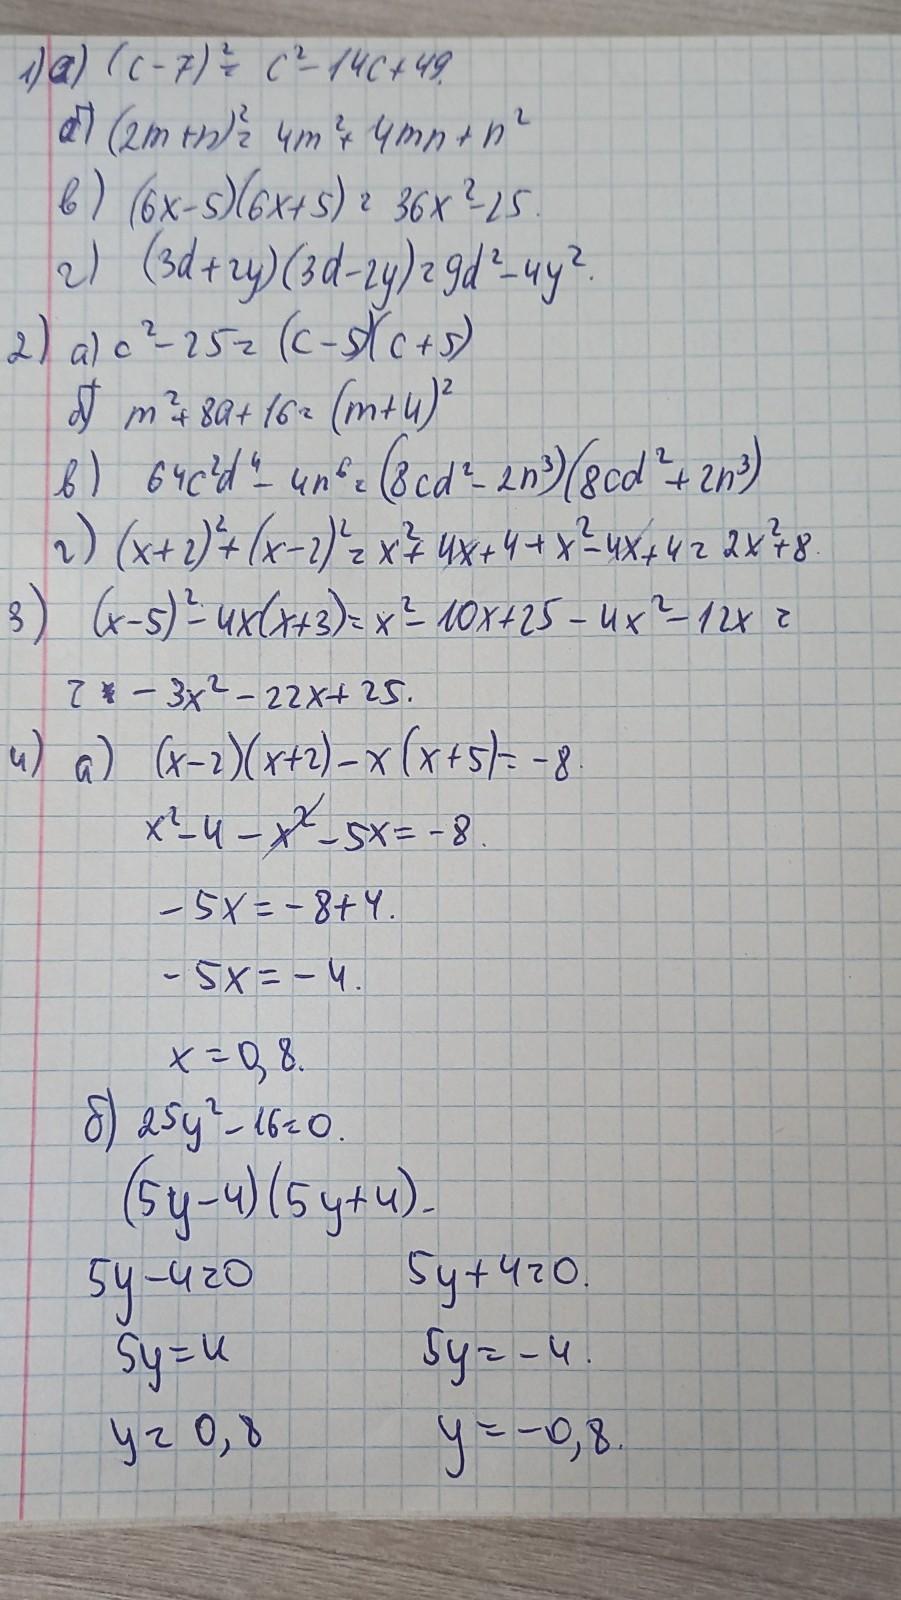 1) а) (c-7)² = c² - 14c + 49.
б) (2m+n)² = 4m² + 4mn + n²
в) (6x-5)(6x+5) = 36x² - 25.
г) (3d+2y)(3d-2y) = 9d² - 4y².
2) а) c² - 25 = (c-5)(c+5)
б) m² + 8a + 16 = (m+4)²
в) 64c²d⁴ - 4n⁶ = (8cd² - 2n³)(8cd² + 2n³)
г) (x+2)² + (x-2)² = x² + 4x + 4 + x² - 4x + 4 = 2x² + 8.
3) (x-5)² - 4x(x+3) = x² - 10x + 25 - 4x² - 12x =
= - 3x² - 22x + 25.
4) а) (x-2)(x+2) - x(x+5) = -8.
x² - 4 - x² - 5x = -8.
-5x = -8+4.
-5x = -4.
x = 0,8.
б) 25y² - 16 = 0.
(5y-4)(5y+4) -
5y-4=0 5y+4=0.
5y=4 5y=-4.
y = 0,8 y = -0,8.